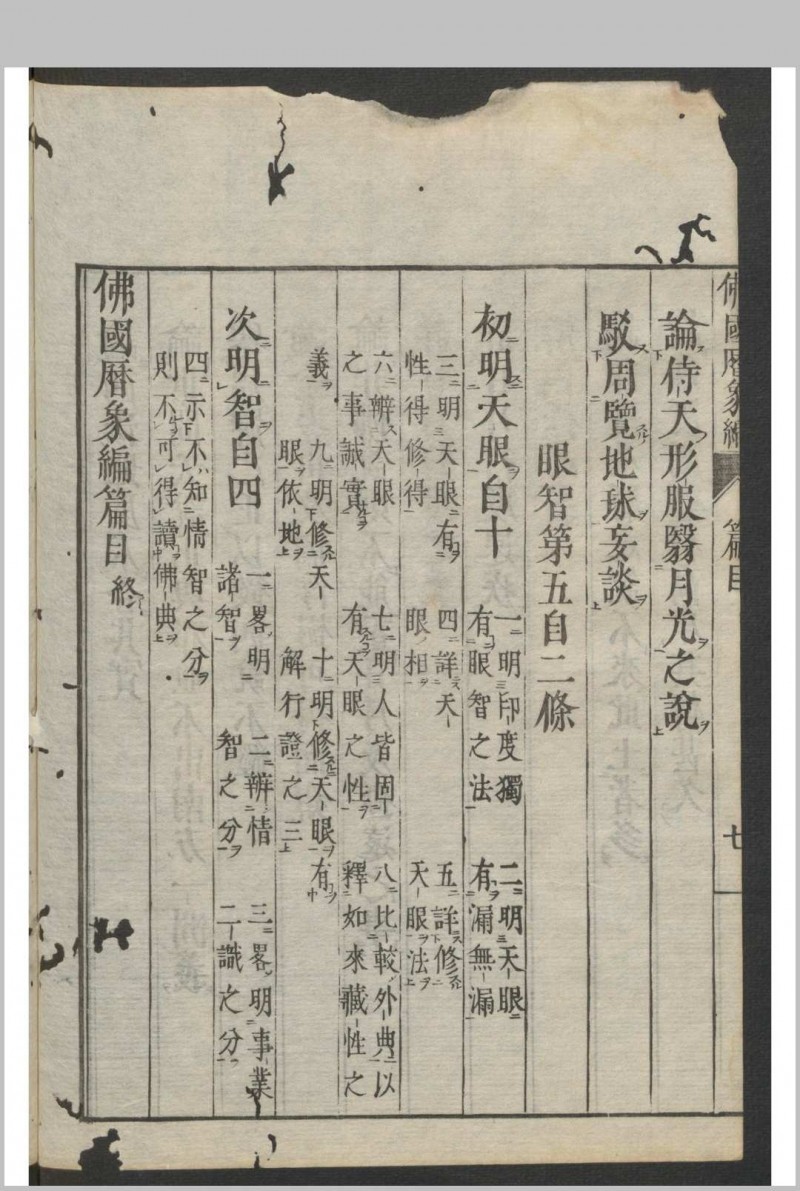 佛國曆象編 篇目 七
論侍天形服翳月光之說
駁周覽地球妄談
眼智第五自二條
初明天眼自十 一明印度獨有眼智之法 二明天眼有漏無漏
三明天眼有性得修得 四詳天眼相 五詳修天眼法
六辨天眼之事誠實 七明人皆固有天眼之性 八比較外典以釋如來藏性之
義 九明修天眼依地 十明修天眼有解行證之三
次明智自四 一畧明諸智 二辨情智之分 三畧明事業二識之分
四示不知情智之分則不可得讀佛典
佛國曆象編篇目終